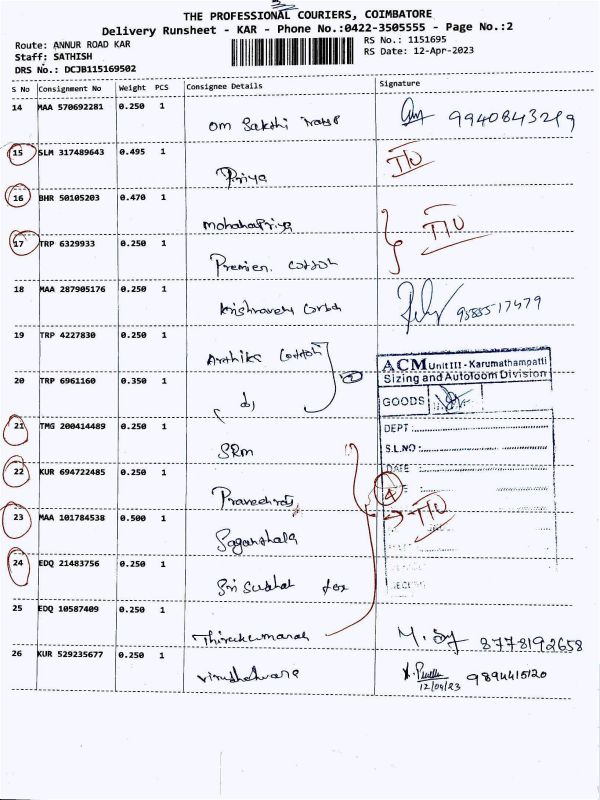 THE PROFESSIONAL COURIERS, COIMBATORE
Delivery Runsheet - KAR - Phone No.:0422-3505555 - Page No.:2
Route: ANNUR ROAD KAR
RS No.: 1151695
Staff: SATHISH
RS Date: 12-Apr-2023
DRS No.: DCJB115169502
S No Consignment No Weight PCS Consignee Details Signature
14 MAA 570692281 0.250 1
Om Sakthi 9940843219
15 SLM 317489643 0.495 1 T/U
Priya
16 BHR 50105203 0.470 1
Mohanapriya T/U
17 TRP 6329933 0.250 1
Premier cotton
18 MAA 287905176 0.250 1
Krishnaveni 9585517479
19 TRP 4227830 0.250 1
Arthika cotton
20 TRP 6961160 0.350 1 2
ACM Unit III - Karumathampatti
Sizing and Autoloom Division
GOODS
21 TMG 200414489 0.250 1
DEPT :
SRM
S.L.NO :
22 KUR 694722485 0.250 1
DATE
Praveenraj 4
23 MAA 101784538 0.500 1 T/U
24 EDQ 21483756 0.250 1
Sri tex
25 EDQ 10587409 0.250 1
Thirukumaran 8778192658
26 KUR 529235677 0.250 1
12/04/23 9894415120